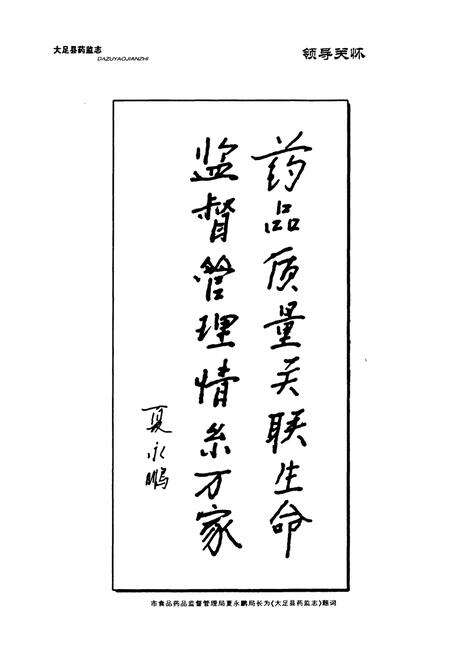 大足县药监志
DAZUYAOJIANZHI
领导关怀
药品质量关联生命
监督管理情系万家
夏永鹏
市食品药品监督管理局夏永鹏局长为《大足县药监志》题词